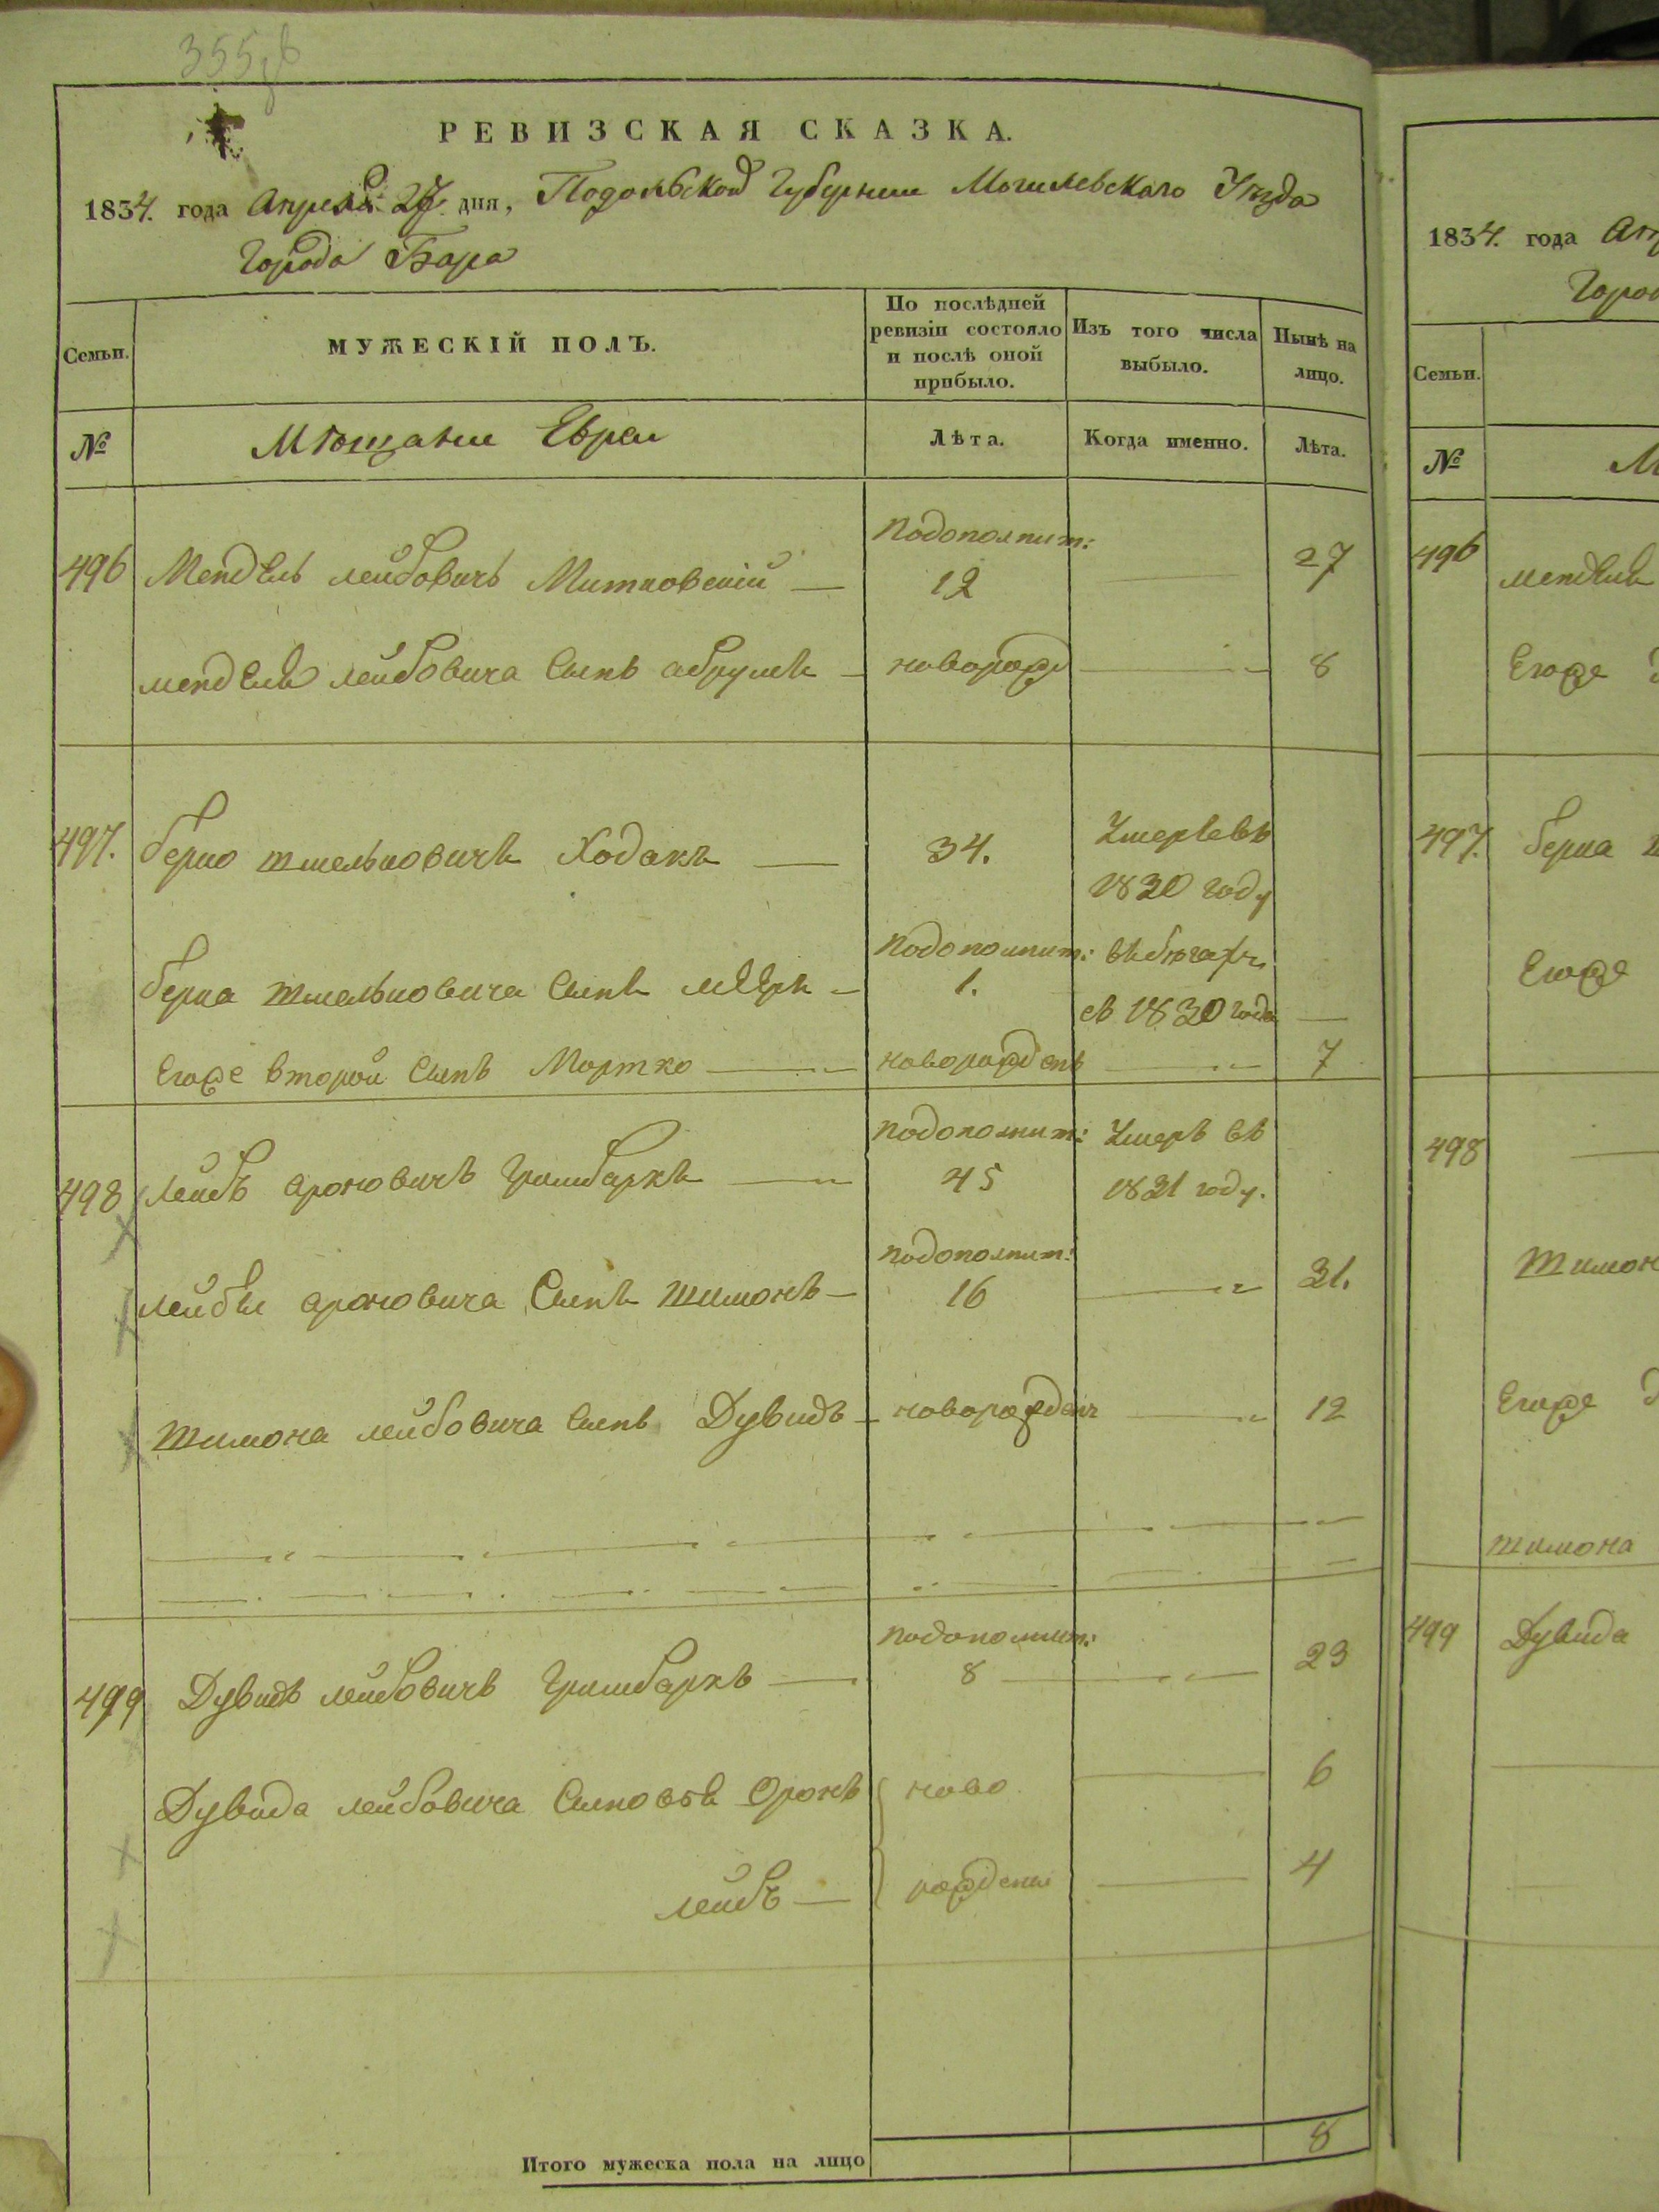 355 об
РЕВИЗСКАЯ СКАЗКА.
1834. года Апреля 27 дня, Подольской Губернии Могилевскаго Уѣзда
Города Бара
Семьи.
МУЖЕСКІЙ ПОЛЪ.
По послѣдней ревизіи состояло и послѣ оной прибыло.
Изъ того числа выбыло.
Нынѣ на лицо.
№
Мѣщане Евреи
Лѣта.
Когда именно.
Лѣта.
496 Мендель Лейбовичъ Митковскій — Подополнит: 12 27
Менделя Лейбовича Сынъ Абрумъ — новорожд 8
497. Берко Шмельковичъ Ходакъ — 34. Умеръ въ 1830 году
Берка Шмельковича Сынъ Мееръ — Подополнит: 1. въ бѣгахъ съ 1830 года —
Егоже второй Сынъ Мортко — новорожденъ 7
498 Лейбъ Ароновичъ Гримбаркъ — Подополнит: 45 Умеръ въ 1831 году.
Лейбы Ароновича Сынъ Шимонъ — Подополнит: 16 31.
Шимона Лейбовича Сынъ Дувидъ — новорожденъ 12
499 Дувидъ Лейбовичъ Гримбаркъ — Подополнит: 8 23
Дувида Лейбовича Сыновья Оронъ ново 6
Лейбъ — рождены 4
Итого мужеска пола на лицо 8
1834. года Апр
Город
Семьи.
№
М
496 Менделя
Егоже
497. Берка
Егоже
498
Шимон
Егоже
Шимона
499 Дувида